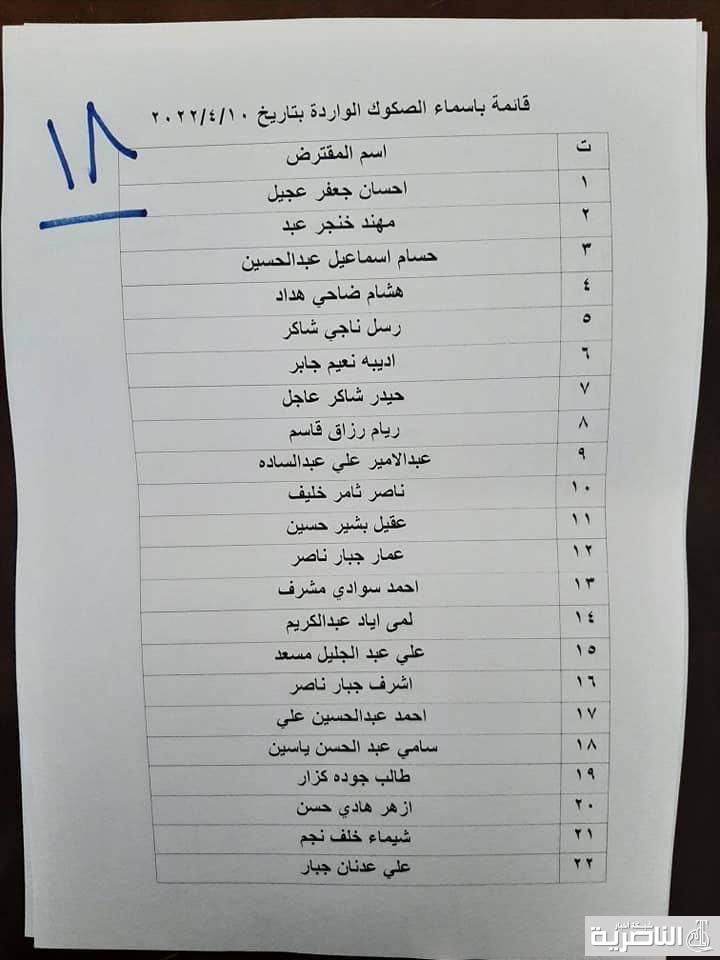 قائمة باسماء الصكوك الواردة بتاريخ ٢٠٢٢/٤/١٠
١٨
ت اسم المقترض
١ احسان جعفر عجيل
٢ مهند خنجر عبد
٣ حسام اسماعيل عبدالحسين
٤ هشام ضاحي هداد
٥ رسل ناجي شاكر
٦ اديبه نعيم جابر
٧ حيدر شاكر عاجل
٨ ريام رزاق قاسم
٩ عبدالامير علي عبدالساده
١٠ ناصر ثامر خليف
١١ عقيل بشير حسين
١٢ عمار جبار ناصر
١٣ احمد سوادي مشرف
١٤ لمى اياد عبدالكريم
١٥ علي عبد الجليل مسعد
١٦ اشرف جبار ناصر
١٧ احمد عبدالحسين علي
١٨ سامي عبد الحسن ياسين
١٩ طالب جوده كزار
٢٠ ازهر هادي حسن
٢١ شيماء خلف نجم
٢٢ علي عدنان جبار
شبكة اخبار
الناصرية